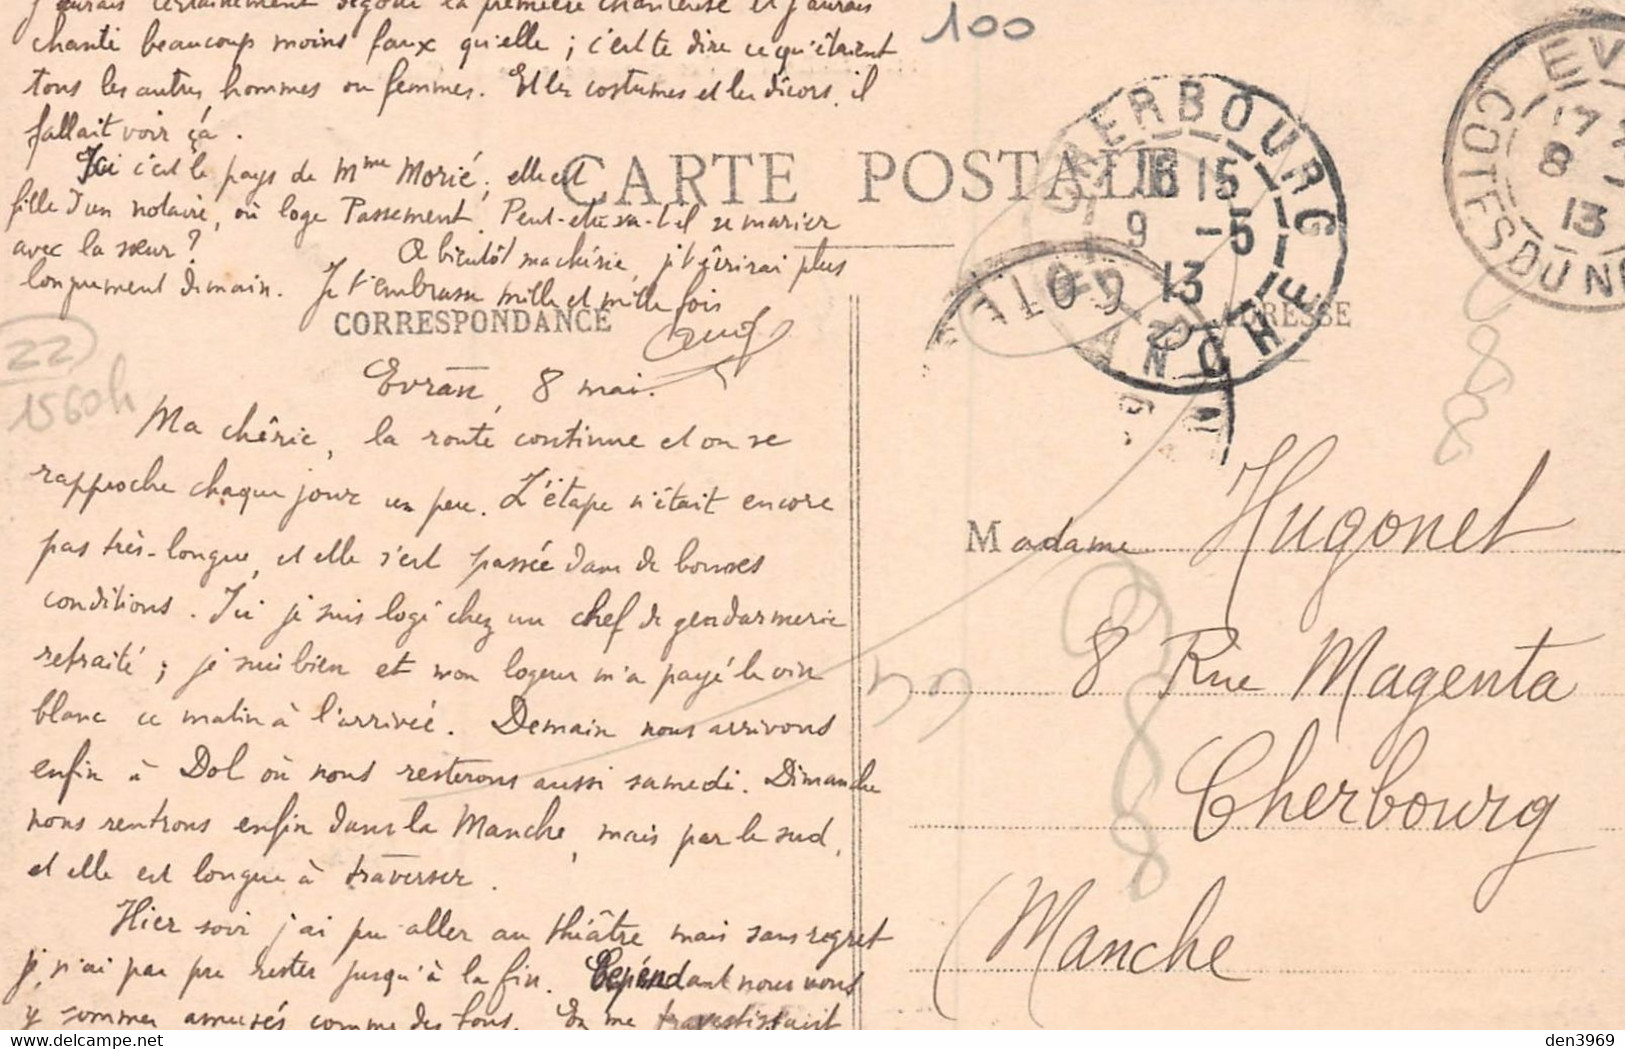 j'aurais certainement dégoté la première chanteuse et j'aurais
chanté beaucoup moins faux qu'elle ; c'est te dire ce qu'étaient
tous les autres, hommes ou femmes. Et les costumes et les décors, il
fallait voir ça.
Ici c'est le pays de Mme Morié ; elle est
fille d'un notaire, où loge Passement. Peut-être va-t-il se marier
avec la sœur ?
A bientôt ma chérie, je t'écrirai plus
longuement demain. Je t'embrasse mille et mille fois
CARTE POSTALE
CORRESPONDANCE
ADRESSE
Evran, 8 mai.
Ma chérie, la route continue et on se
rapproche chaque jour un peu. L'étape n'était encore
pas très-longue, et elle s'est passée dans de bonnes
conditions. Ici je suis logé chez un chef de gendarmerie
retraité ; je suis bien et mon logeur m'a payé le vin
blanc ce matin à l'arrivée. Demain nous arrivons
enfin à Dol où nous resterons aussi samedi. Dimanche
nous rentrons enfin dans la Manche, mais par le sud,
et elle est longue à traverser.
Hier soir j'ai pu aller au théâtre mais sans regret
je n'ai pas pu rester jusqu'à la fin. Cependant nous nous
y sommes amusés comme des fous. En me travestissant
Madame Hugonet
8 Rue Magenta
Cherbourg
(Manche
100
22
1560h
CHERBOURG
18 15
9 -5
13
MANCHE
EV
17
8
13
COTES DU NO
den3969